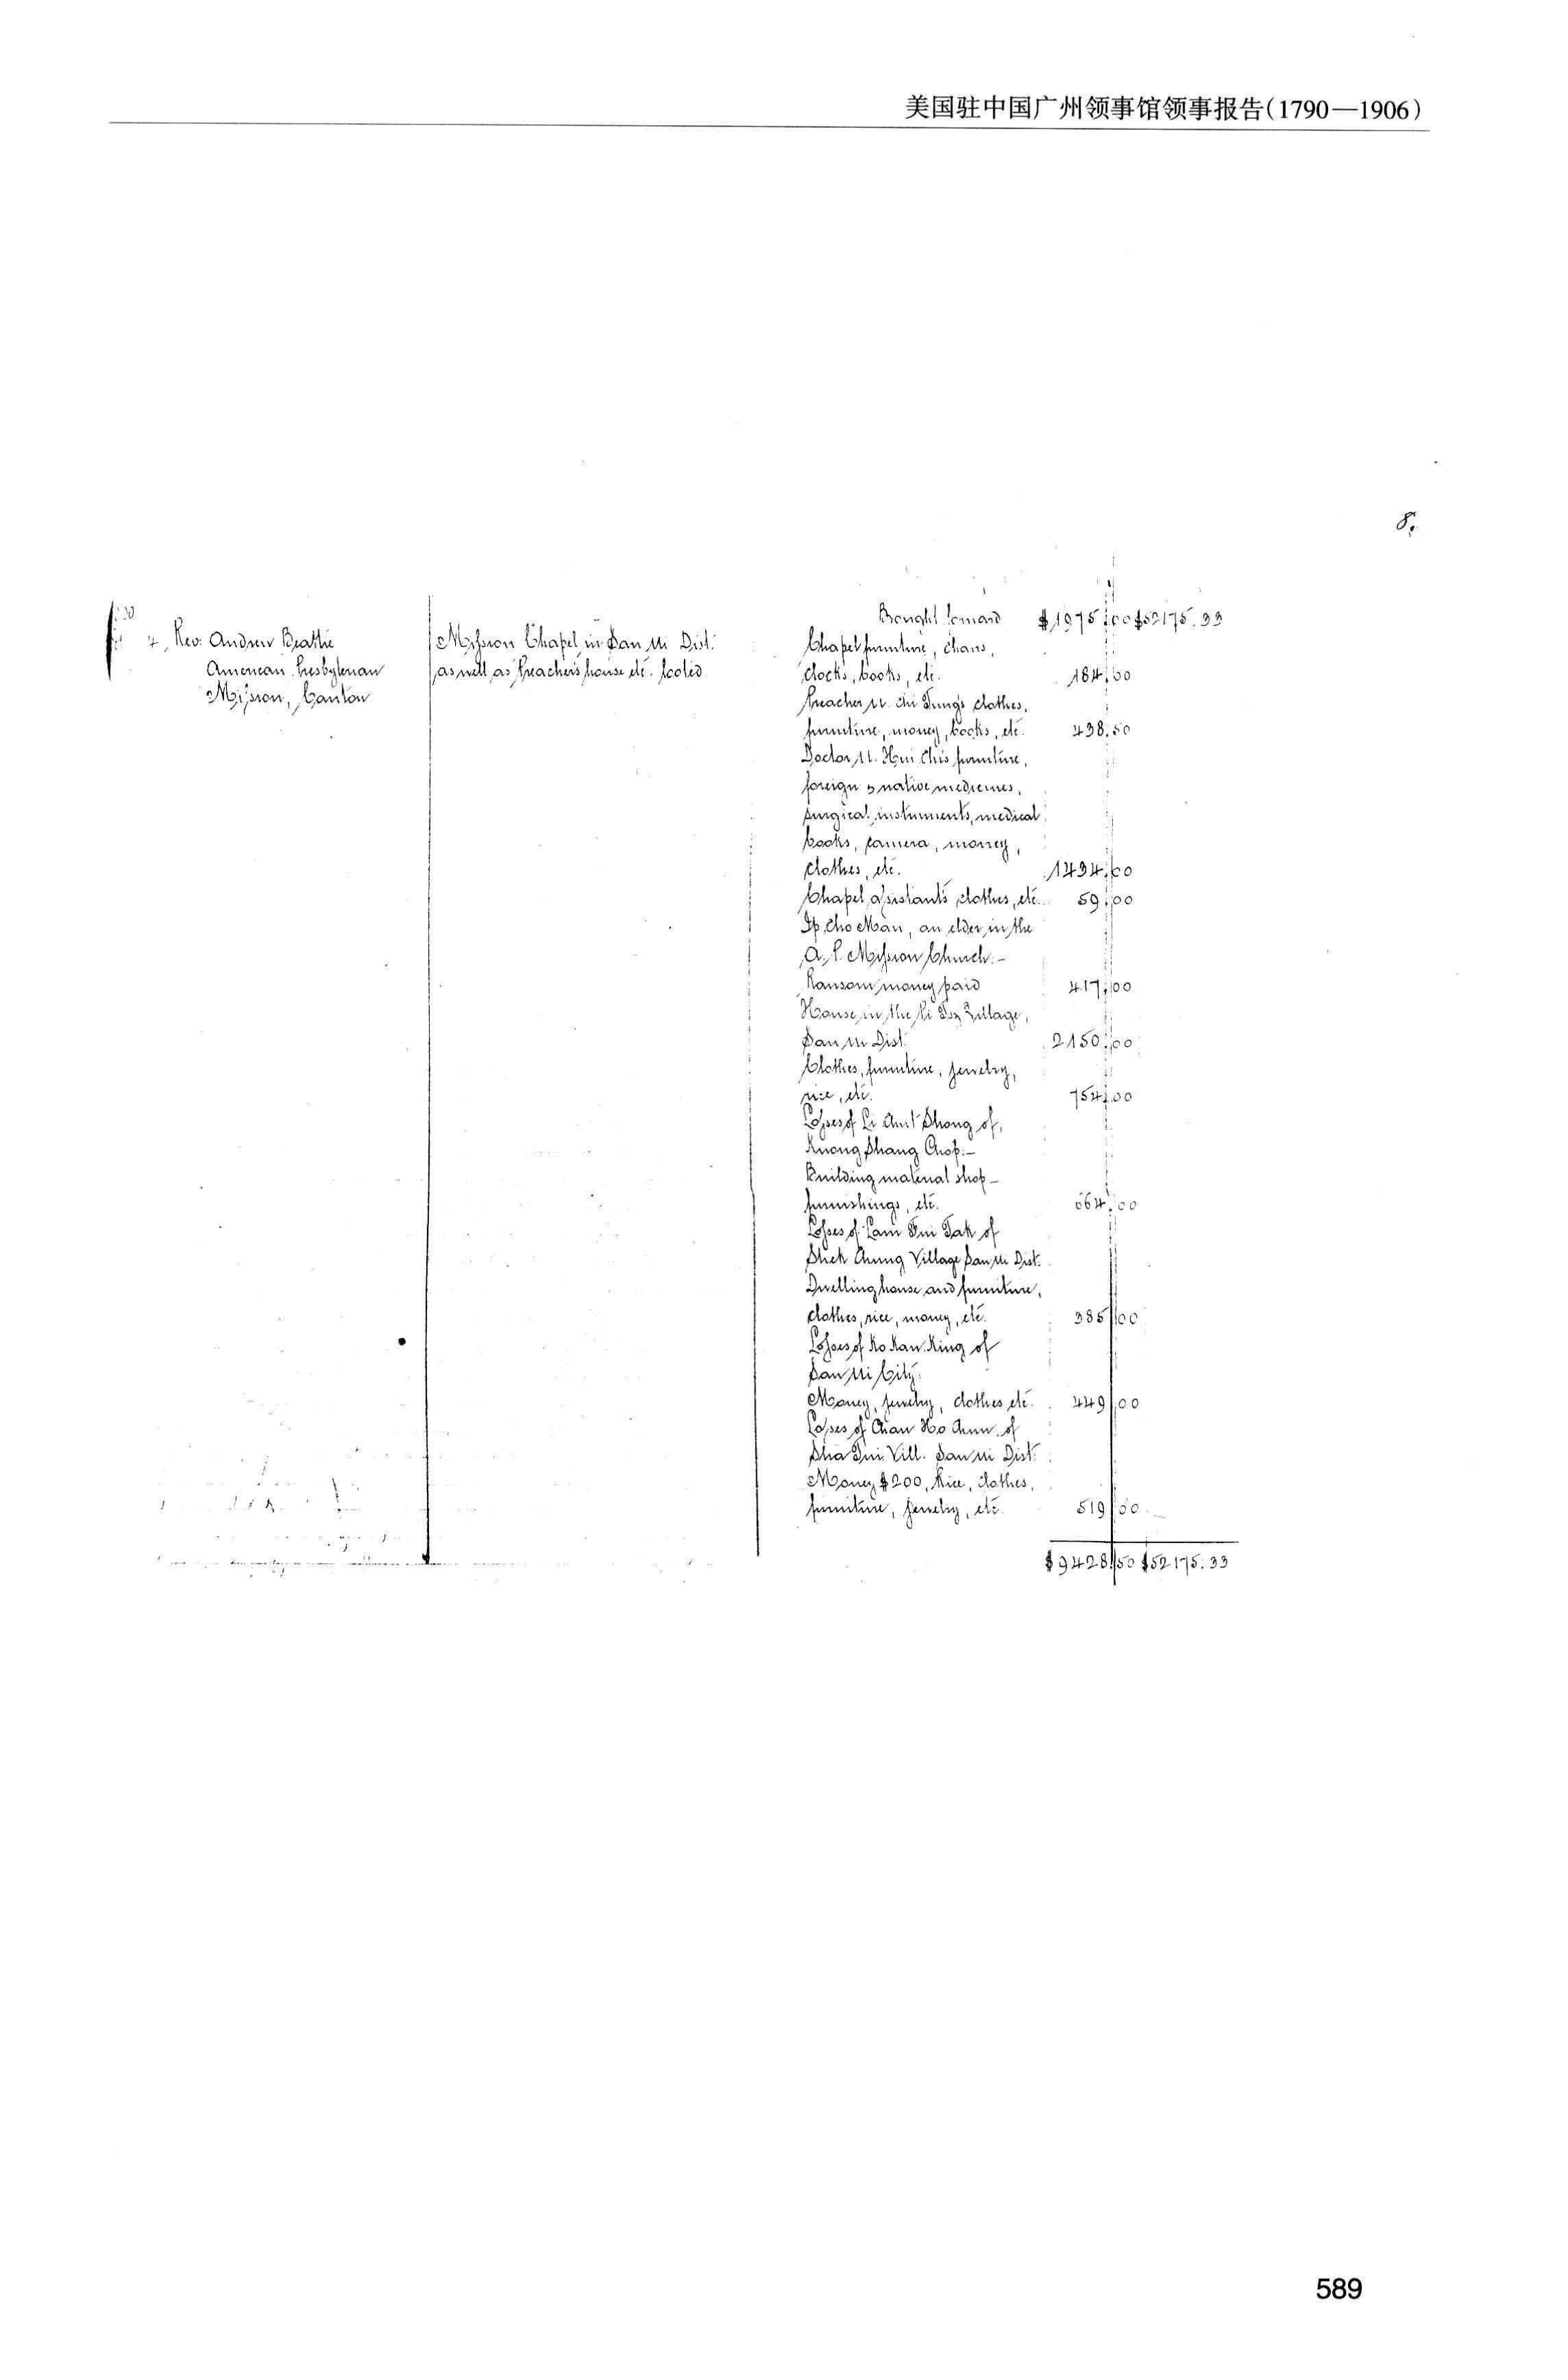 美国驻中国广州领事馆领事报告(1790—1906)
8.
Bought forward $1975.00 $52175.33
4. Rev. Andrew Beattie
American Presbyterian
Mission, Canton
Mission Chapel in San Ui Dist.
as well as Preacher's house etc. looted
Chapel furniture, chairs,
clocks, books, etc. 184.00
Preacher U. Chi Tung's clothes,
furniture, money, books, etc. 438.50
Doctor U. Hui Chi's furniture,
foreign & native medicines,
surgical instruments, medical
books, camera, money,
clothes, etc. 1434.00
Chapel assistant's clothes, etc. 59.00
Ip Cho Man, an elder in the
A. P. Mission Church:-
Ransom money paid 417.00
House in the Village,
San Ui Dist. 2150.00
Clothes, furniture, jewelry,
rice, etc. 754.00
Losses of Li Shong of,
Kwong Shang Chop:-
Building material shop-
furnishings, etc. 664.00
Losses of Lam Tui Tak of
Shek Chung Village San Ui Dist.
Dwelling house and furniture,
clothes, rice, money, etc. 385.00
Losses of Ko Kan King of
San Ui City.
Money, jewelry, clothes etc. 449.00
Losses of Chan Ho Chun of
Sha Tui Vill. San Ui Dist.
Money $200, Rice, clothes,
furniture, jewelry, etc. 519.00
$9428.50 $52175.33
589